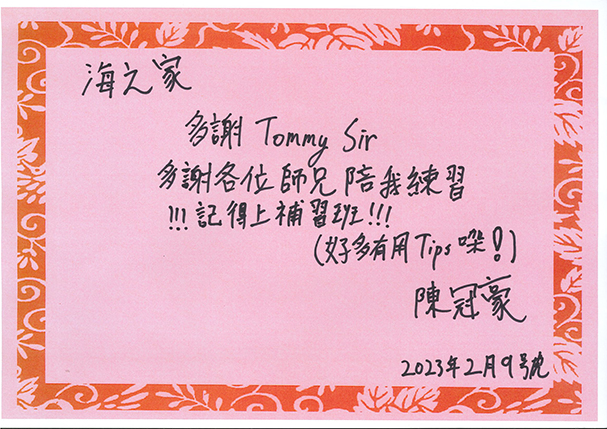 海之家
多謝 Tommy Sir
多謝各位師兄陪我練習
!!!記得上補習班!!!
(好多有用Tips㗎!)
陳冠豪
2023年2月9號